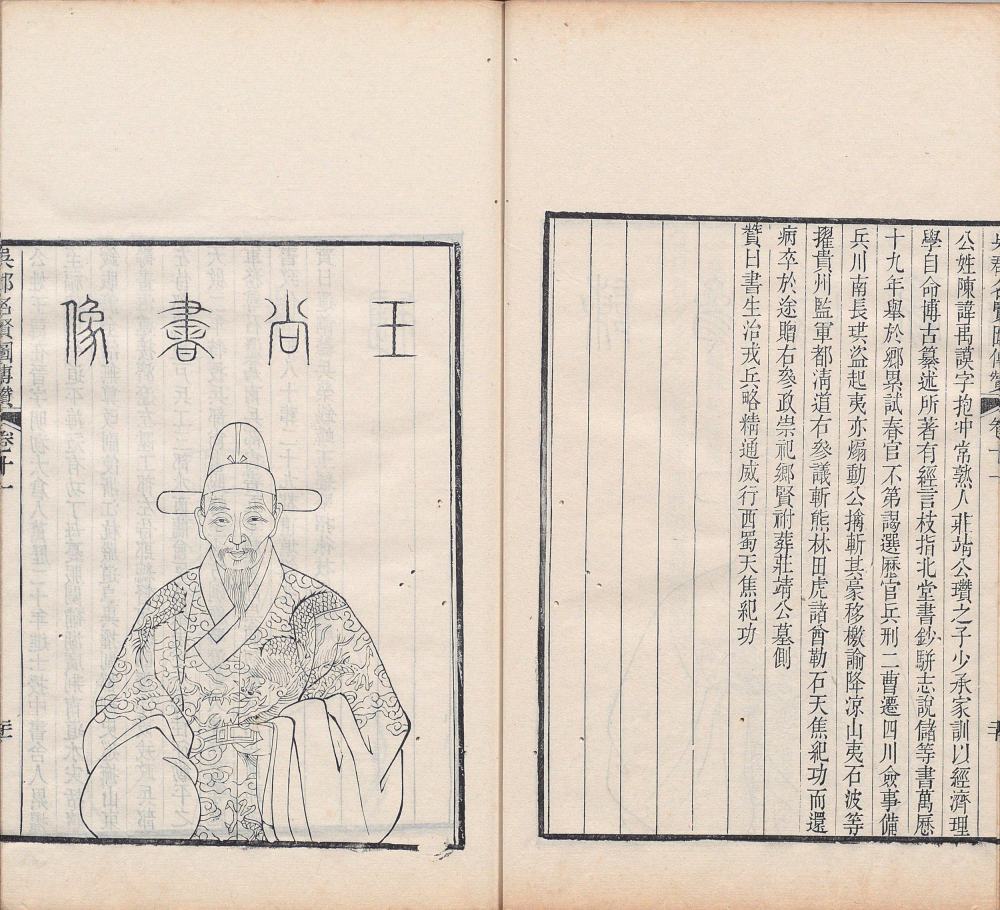 吳郡名賢圖傳贊 卷十一
公姓陳諱禹謨字抱冲常熟人莊靖公瓚之子少承家訓以經濟理
學自命博古纂述所著有經言枝指北堂書鈔駢志說儲等書萬厯
十九年舉於鄉累試春官不第謁選歷官兵刑二曹遷四川僉事備
兵川南長珙盜起夷亦煽動公擒斬其豪移檄諭降凉山夷石波等
擢貴州監軍都清道右叅議斬熊林田虎諸酋勒石天焦紀功而還
病卒於途贈右叅政崇祀鄉賢祔葬莊靖公墓側
贊曰書生治戎兵略精通威行西蜀天焦紀功
王尚書像
吳郡名賢圖傳贊 卷十一